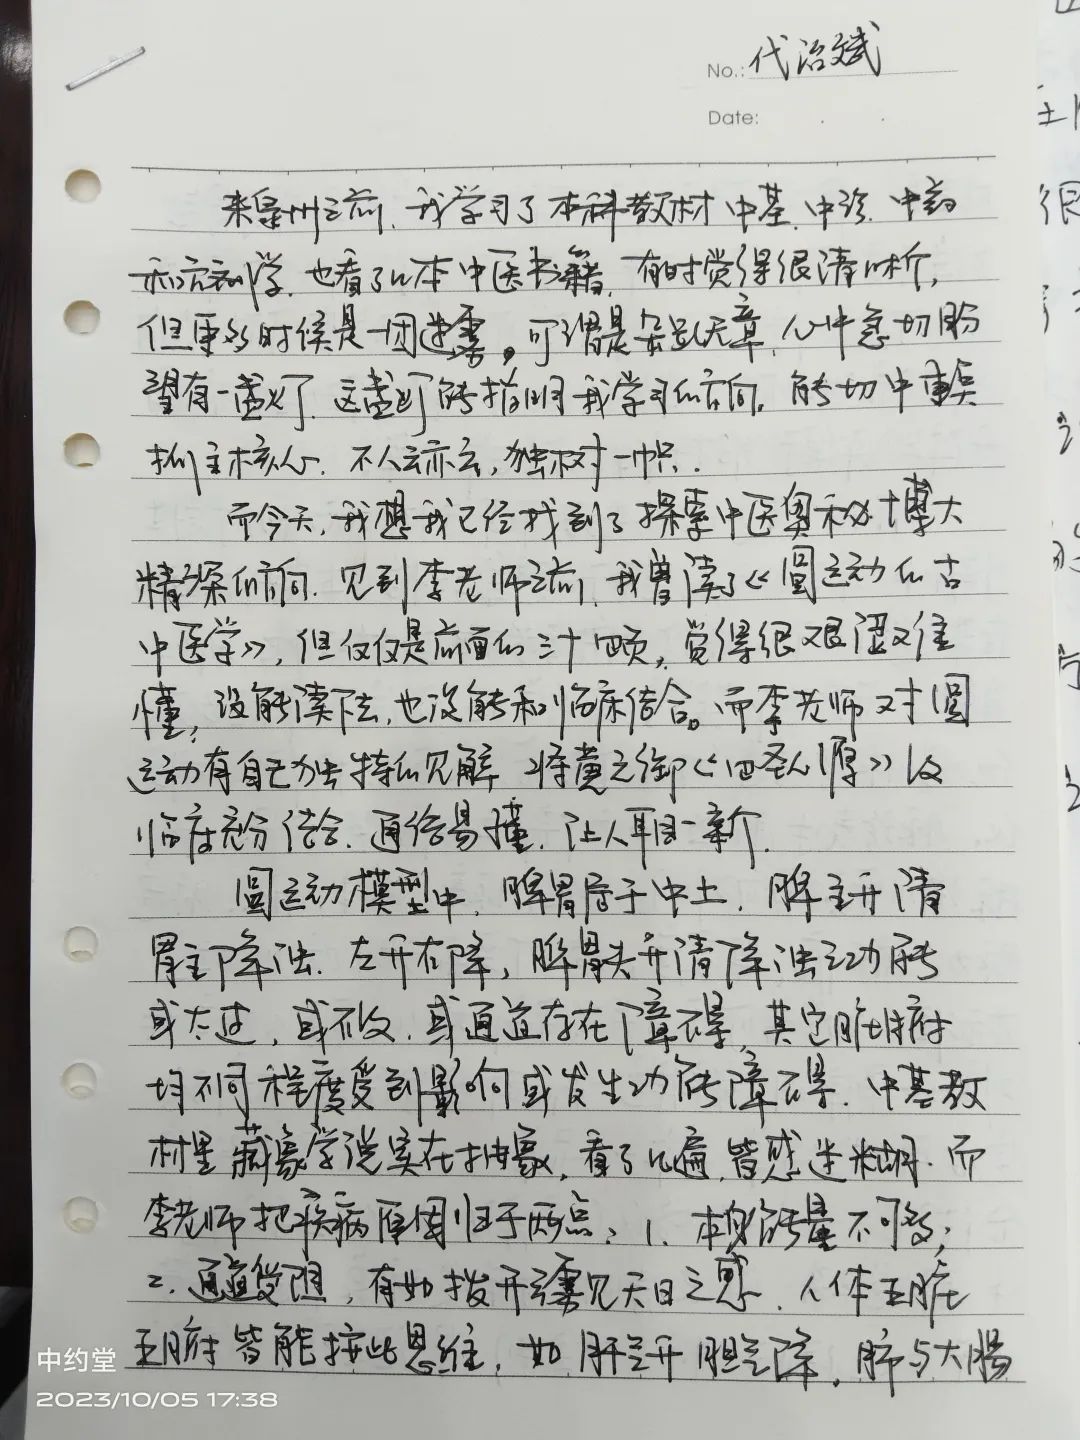 No.: 代治斌
Date:
来泉州之前、我学习了本科教材中基、中诊、中药
和方剂学、也看了几本中医书籍、有时觉得很清晰,
但更多时候是一团迷雾。可谓是杂乱无章、心中急切盼
望有一盏灯、这盏灯能指明我学习的方向、能切中要点
抓主核心、不人云亦云,独树一帜.
而今天、我想我已经找到了探索中医奥秘博大
精深的方向、见到李老师之前、我曾读了《圆运动的古
中医学》,但仅仅是前面的三十四页,觉得很艰涩难
懂,没能读下去,也没能和临床结合。而李老师对圆
运动有自己独特的见解、将黄元御《四圣心源》以及
临床充分结合、通俗易懂、让人耳目一新.
圆运动模型中、脾胃居于中土、脾主升清
胃主降浊、左升右降,脾胃失升清降浊之功能
或太过,或不及、或通道存在障碍,其它脏腑
均不同程度受到影响或发生功能障碍、中基教
材里藏象学说实在抽象,看了几遍,皆感迷糊、而
李老师把疾病原因归于两点:1、本身能量不可及;
2、通道受阻,有如拨开云雾见天日之感、人体五脏
五腑皆能按此思维,如肝气升胆气降,肺与大肠
中约堂
2023/10/05 17:38